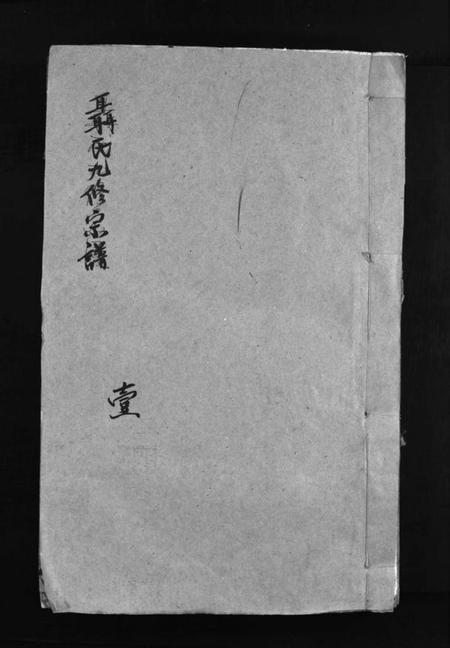 聶氏九修宗譜
壹